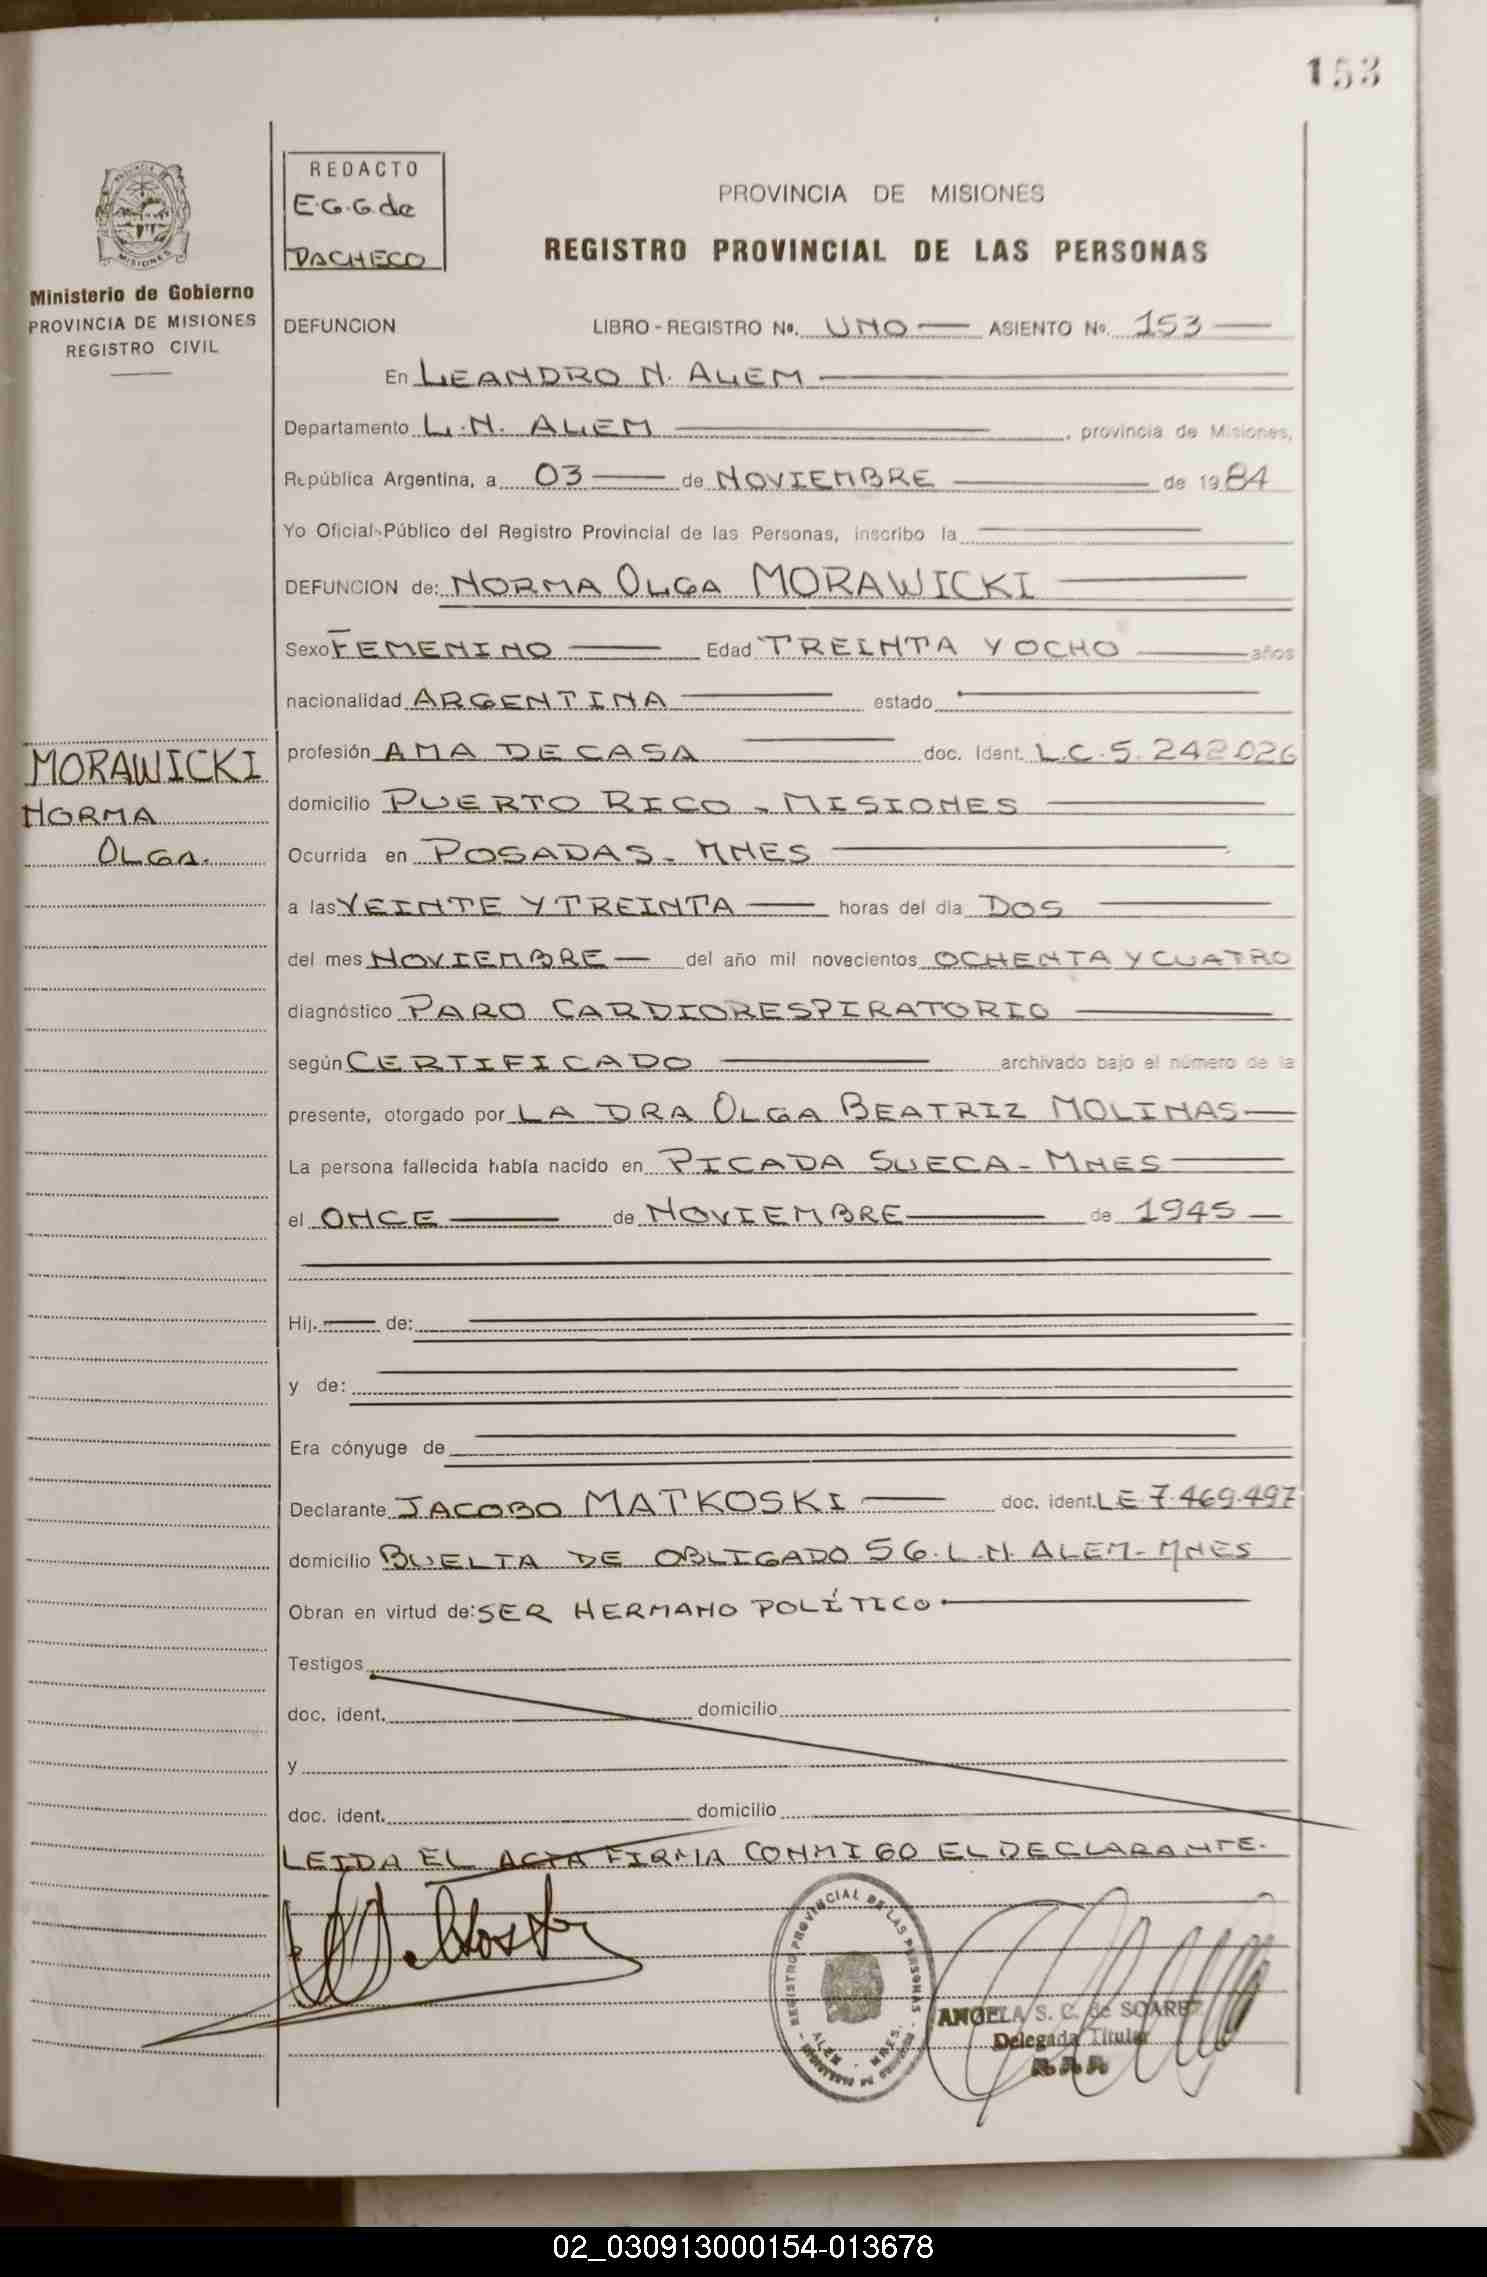 153
REDACTO
E.G.G. de
PACHECO
PROVINCIA DE MISIONES
REGISTRO PROVINCIAL DE LAS PERSONAS
MISIONES
Ministerio de Gobierno
PROVINCIA DE MISIONES
REGISTRO CIVIL
DEFUNCION LIBRO - REGISTRO Nº. UNO ASIENTO Nº. 153
En LEANDRO N. ALEM
Departamento L.N. ALEM, provincia de Misiones,
República Argentina, a 03 de NOVIEMBRE de 1984
Yo Oficial Público del Registro Provincial de las Personas, inscribo la
DEFUNCION de: NORMA OLGA MORAWICKI
Sexo FEMENINO Edad TREINTA Y OCHO años
nacionalidad ARGENTINA estado
MORAWICKI
NORMA
OLGA.
profesión AMA DE CASA doc. Ident. L.C.5.242026
domicilio PUERTO RICO - MISIONES
Ocurrida en POSADAS - MNES
a las VEINTE Y TREINTA horas del dia DOS
del mes NOVIEMBRE del año mil novecientos OCHENTA Y CUATRO
diagnóstico PARO CARDIORESPIRATORIO
según CERTIFICADO archivado bajo el número de la
presente, otorgado por LA DRA OLGA BEATRIZ MOLINAS
La persona fallecida había nacido en PICADA SUECA - MNES
el ONCE de NOVIEMBRE de 1945
Hij. de:
y de:
Era cónyuge de
Declarante JACOBO MATKOSKI doc. ident. LE 7.469.497
domicilio BUELTA DE OBLIGADO 56. L.N. ALEM - MNES
Obran en virtud de: SER HERMANO POLÍTICO
Testigos
doc. ident. domicilio
y
doc. ident. domicilio
LEIDA EL ACTA FIRMA CONMIGO EL DECLARANTE.
REGISTRO PROVINCIAL DE LAS PERSONAS
ALEM - MNES.
ANGELA S. C. de SOAREZ
Delegada Titular
02_030913000154-013678